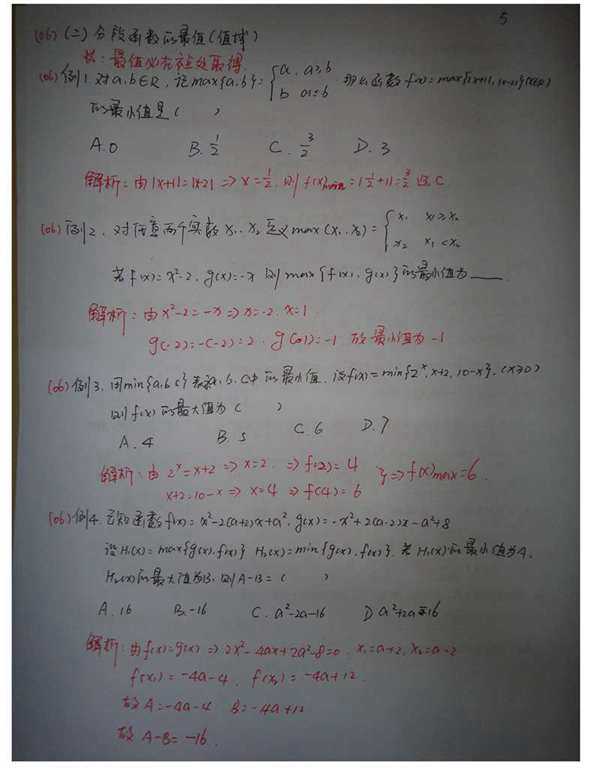 5
(06) (二) 分段函数的最值(值域)
最值必在拐处取得
(06) 例1. 对a,b∈R, 记max{a,b}={a, a≥b
b a<b 那么函数 f(x)=max{|x+1|,|x-2|}(x∈R)
的最小值是 ( )
A. 0 B. 1/2 C. 3/2 D. 3
解析: 由|x+1|=|x-2| => x=1/2. 则 f(x)min=|1/2+1|=3/2 选C
(06) 例2. 对任意两个实数x₁、x₂ 定义max(x₁,x₂)={x₁ x₁≥x₂
x₂ x₁<x₂
若f(x)=x²-2, g(x)=-x 则max{f(x),g(x)}的最小值为____
解析: 由x²-2=-x => x=-2. x=1.
g(-2)=-(-2)=2. g(1)=-1 故最小值为-1
(06) 例3. 用min{a,b,c}表示a、b、c中的最小值. 设f(x)=min{2ˣ, x+2, 10-x}. (x≥0)
则f(x)的最大值为 ( )
A. 4 B. 5 C. 6 D. 7
解析: 由 2ˣ=x+2 => x=2. => f(2)=4
x+2=10-x => x=4 => f(4)=6 } => f(x)max=6.
(06) 例4. 已知函数f(x)=x²-2(a+2)x+a², g(x)=-x²+2(a-2)x-a²+8
设H₁(x)=max{g(x),f(x)} H₂(x)=min{g(x),f(x)}. 若H₁(x)的最小值为A,
H₂(x)的最大值为B, 则A-B=( )
A. 16 B. -16 C. a²-2a-16 D a²+2a-16
解析: 由f(x)=g(x) => 2x²-4ax+2a²-8=0. x₁=a+2, x₂=a-2
f(x₁)=-4a-4. f(x₂)=-4a+12.
故 A=-4a-4 B=-4a+12
故 A-B=-16.